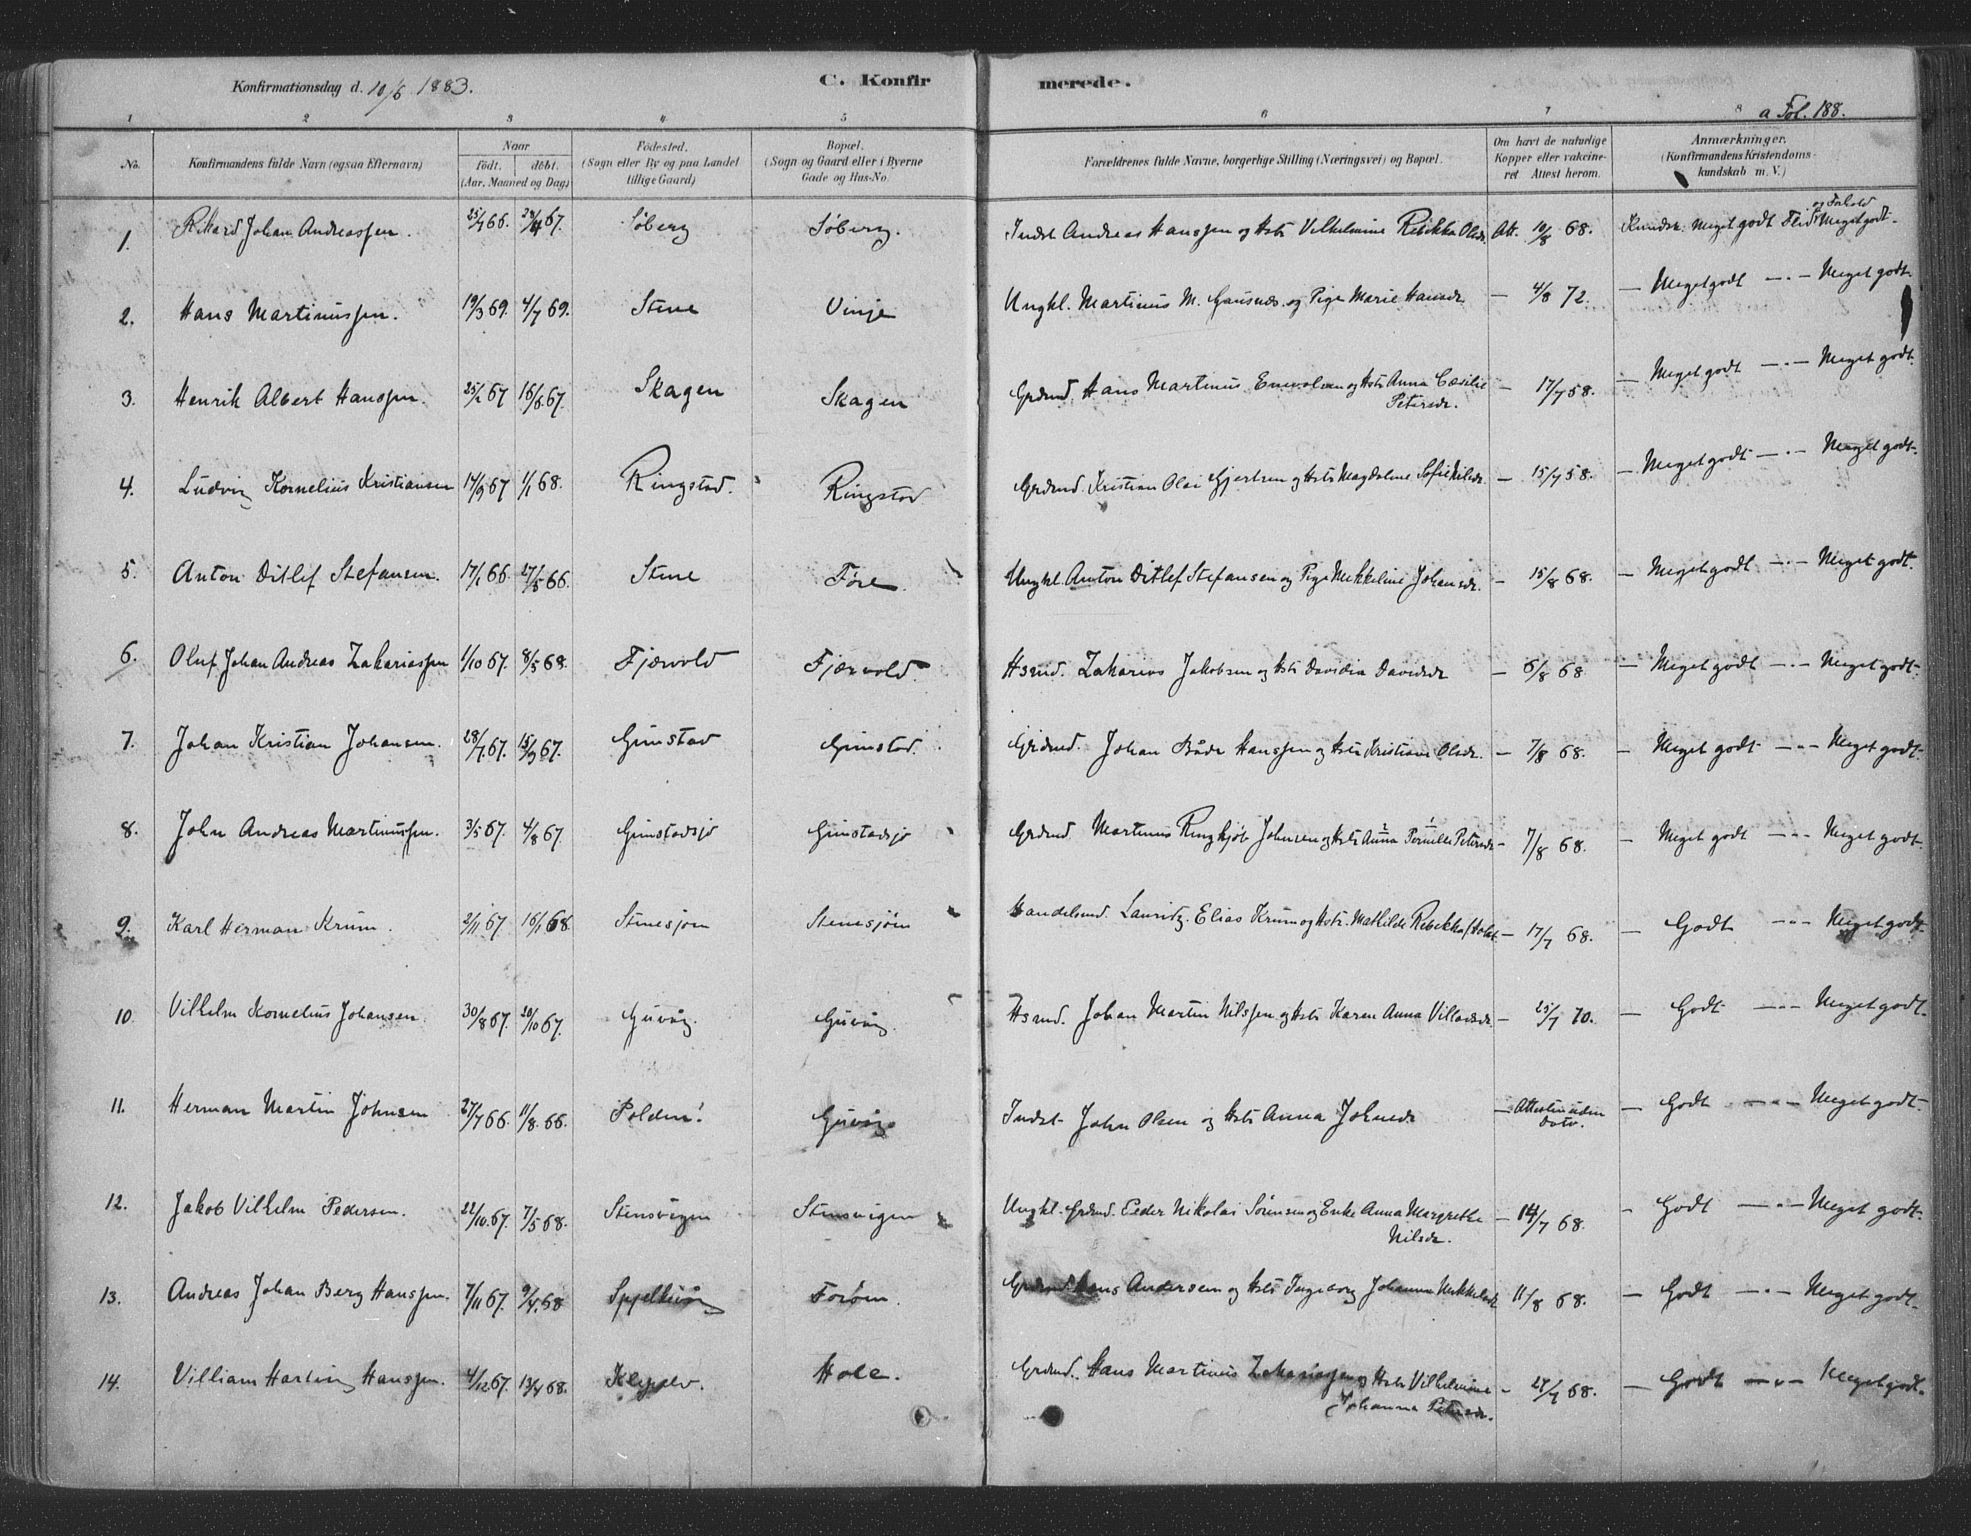 Konfirmationsdag d. 10/6 1883. C. Konfirmerede. a Fol. 188.
1 2 3 4 5 6 7 8
No. Konfirmandens fulde Navn (ogsaa Efternavn) Naar født. døbt. (Aar, Maaned og Dag) Fødested. (Sogn eller By og paa Landet tillige Gaard) Bopæl. (Sogn og Gaard eller i Byerne Gade og Hus-No. Forældrenes fulde Navne, borgerlige Stilling (Næringsvei) og Bopæl. Om havt de naturlige Kopper eller vakcineret Attest herom. Anmærkninger. (Konfirmandens Kristendomskundskab m. V.)
1. Rikard Johan Andreassen. 25/4 66. 67. Søberg Søberg. Indst Andreas Hanssen og Hstr Vilhelmine Rebekka Olsdr Att. 10/8 68. Kundsk. Meget godt Flid og Forhold Meget godt.
2. Hans Martinussen. 19/3 69. 4/7 69. Stene Vinje Ungkl. Martinus M. Gausnæs. og Pige Marie Hansdr — 4/8 72. — Meget godt —.— Meget godt.
3. Henrik Albert Hanssen. 25/2 67 16/6 67. Skagen Skagen Grdmd. Hans Martinus Enevoldsen og Hstr Anna Cæsilie Petersdr. — 17/7 58. — Meget godt —.— Meget godt.
4. Ludvig Kornelius Kristiansen 14/9 67 1/1 68. Ringstad. Ringstad Grdmd. Kristian Olai Gjertsen og Hstr Magdalene Sofie Nilsdr. — 15/7 58. — Meget godt —.— Meget godt.
5. Anton Ditlef Stefansen. 17/1 66. 27/5 66. Stene Føre. Ungkl. Anton Ditlef Stefansen og Pige Mekkeline Johansdr. — 15/8 68. — Meget godt —.— Meget godt.
6. Oluf Johan Andreas Zakariassen 1/10 67. 8/5 68. Fjærvold Fjærvold. Hsmd. Zakarias Jakobsen og Hstr Davidia Davidsdr — 6/8 68 — Meget godt —.— Meget godt.
7. Johan Kristian Johansen. 28/7 67. 15/9 67. Grimstad Grimstad. Grdmd. Johan Både Hanssen og Hstr Kristiane Olsdr. — 7/8 68. — Meget godt —.— Meget godt.
8. John Andreas Martinussen. 3/5 67. 4/8 67. Grimstadsjø Grimstadsjø Grdmd. Martinus Ringkjøb Johnsen og Hstr Anna Pernille Petersdr — 7/8 68. — Meget godt —.— Meget godt.
9. Karl Herman Krum. 2/11 67. 16/1 68. Stenesjøen Stenesjøen Handelsmd. Lauridz. Elias Krum og Hstr. Mathilde Rebekka Holst — 17/7 68. — Godt —.— Meget godt.
10. Vilhelm Kornelius Johansen. 30/8 67. 20/10 67. Guvåg. Guvåg. Hsmd. Johan Martin Nilssen og Hstr Karen Anna Villadsdr — 25/7 70. — Godt —.— Meget godt.
11. Herman Martin Johnsen 27/7 66. 11/8. 66. Polden! Guvåg Indst. John Olsen og Hstr Anna Johnsdr — Attesten uden Dato. — Godt —.— Meget godt.
12. Jakob Vilhelm Pedersen. 22/10 67. 7/5 68. Stensvigen Stensvigen Ungkl. Grdmd. Peder Nikolai Sørensen og Enke Anna Margrethe Nilsdr. — 14/7 68. — Godt —.— Meget godt.
13. Andreas Johan Berg Hanssen. 7/11 67. 9/4 68 Spjelkvåg Forøen. Grdmd Hans Andersen og Hstr Ingeborg Johanna Mekkelsdr 11/8 68. — Godt —.— Meget godt.
14. Villiam Harting Hanssen. 4/12 67. 13/4 68. Hole. Grdmd. Hans Martinus Zakariassen og Hstr Vilhelmine Johanna Petersdr. — 24/7 68. — Godt —.— Meget godt.